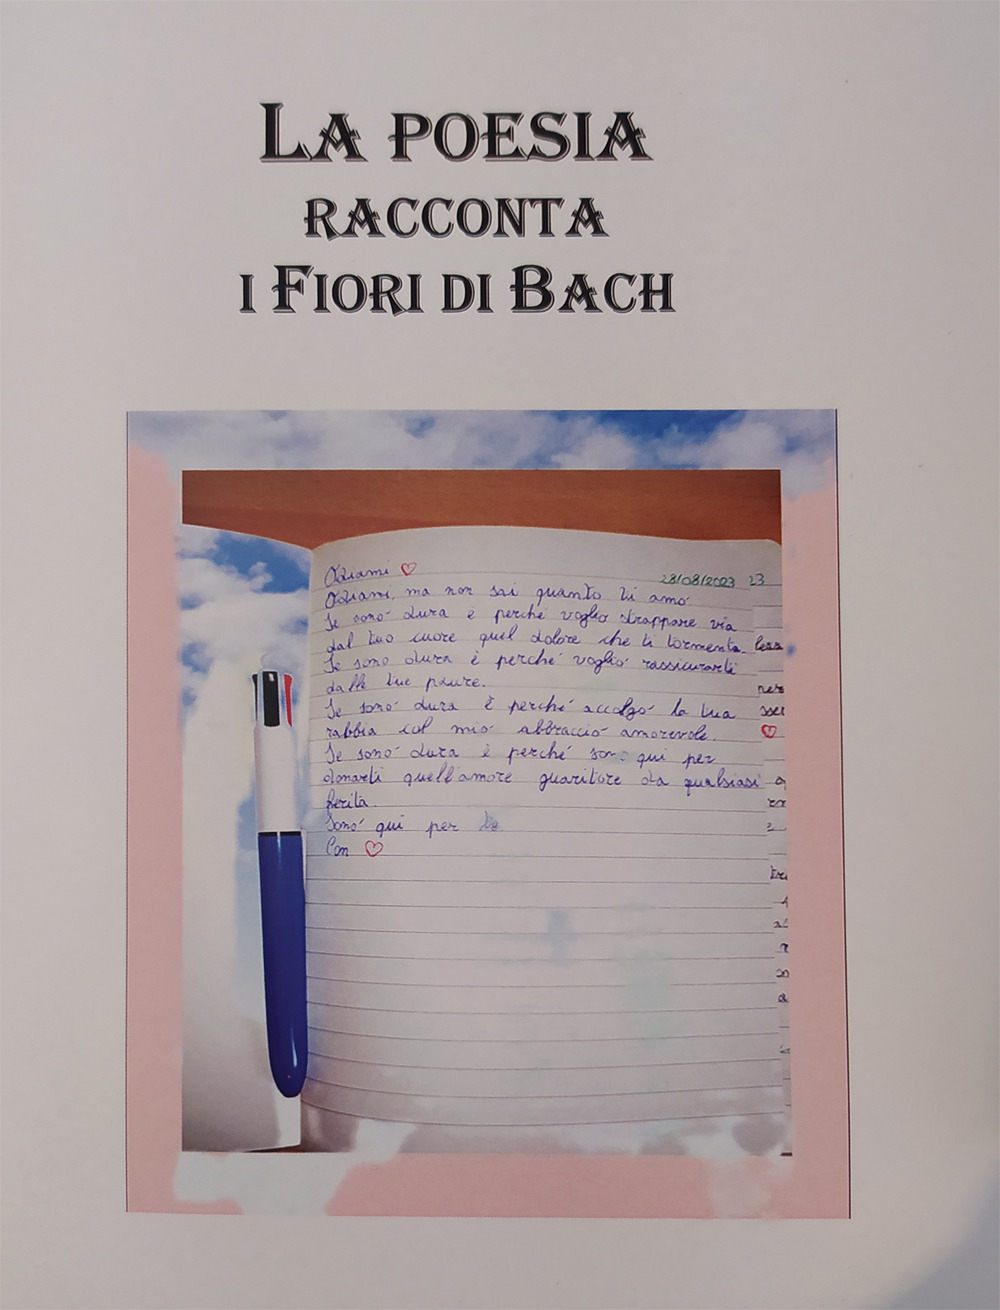 LA POESIA
RACCONTA
I FIORI DI BACH
Odiami ♡
28/08/2023 23
Odiami, ma non sai quanto ti amo
Se sono dura è perché voglio strappare via
dal tuo cuore quel dolore che ti tormenta.
Se sono dura è perché voglio rassicurarti
dalle tue paure.
Se sono dura è perché accolgo la tua
rabbia col mio abbraccio amorevole.
Se sono dura è perché sono qui per
donarti quell'amore guaritore da qualsiasi
ferita.
Sono qui per te
Con ♡